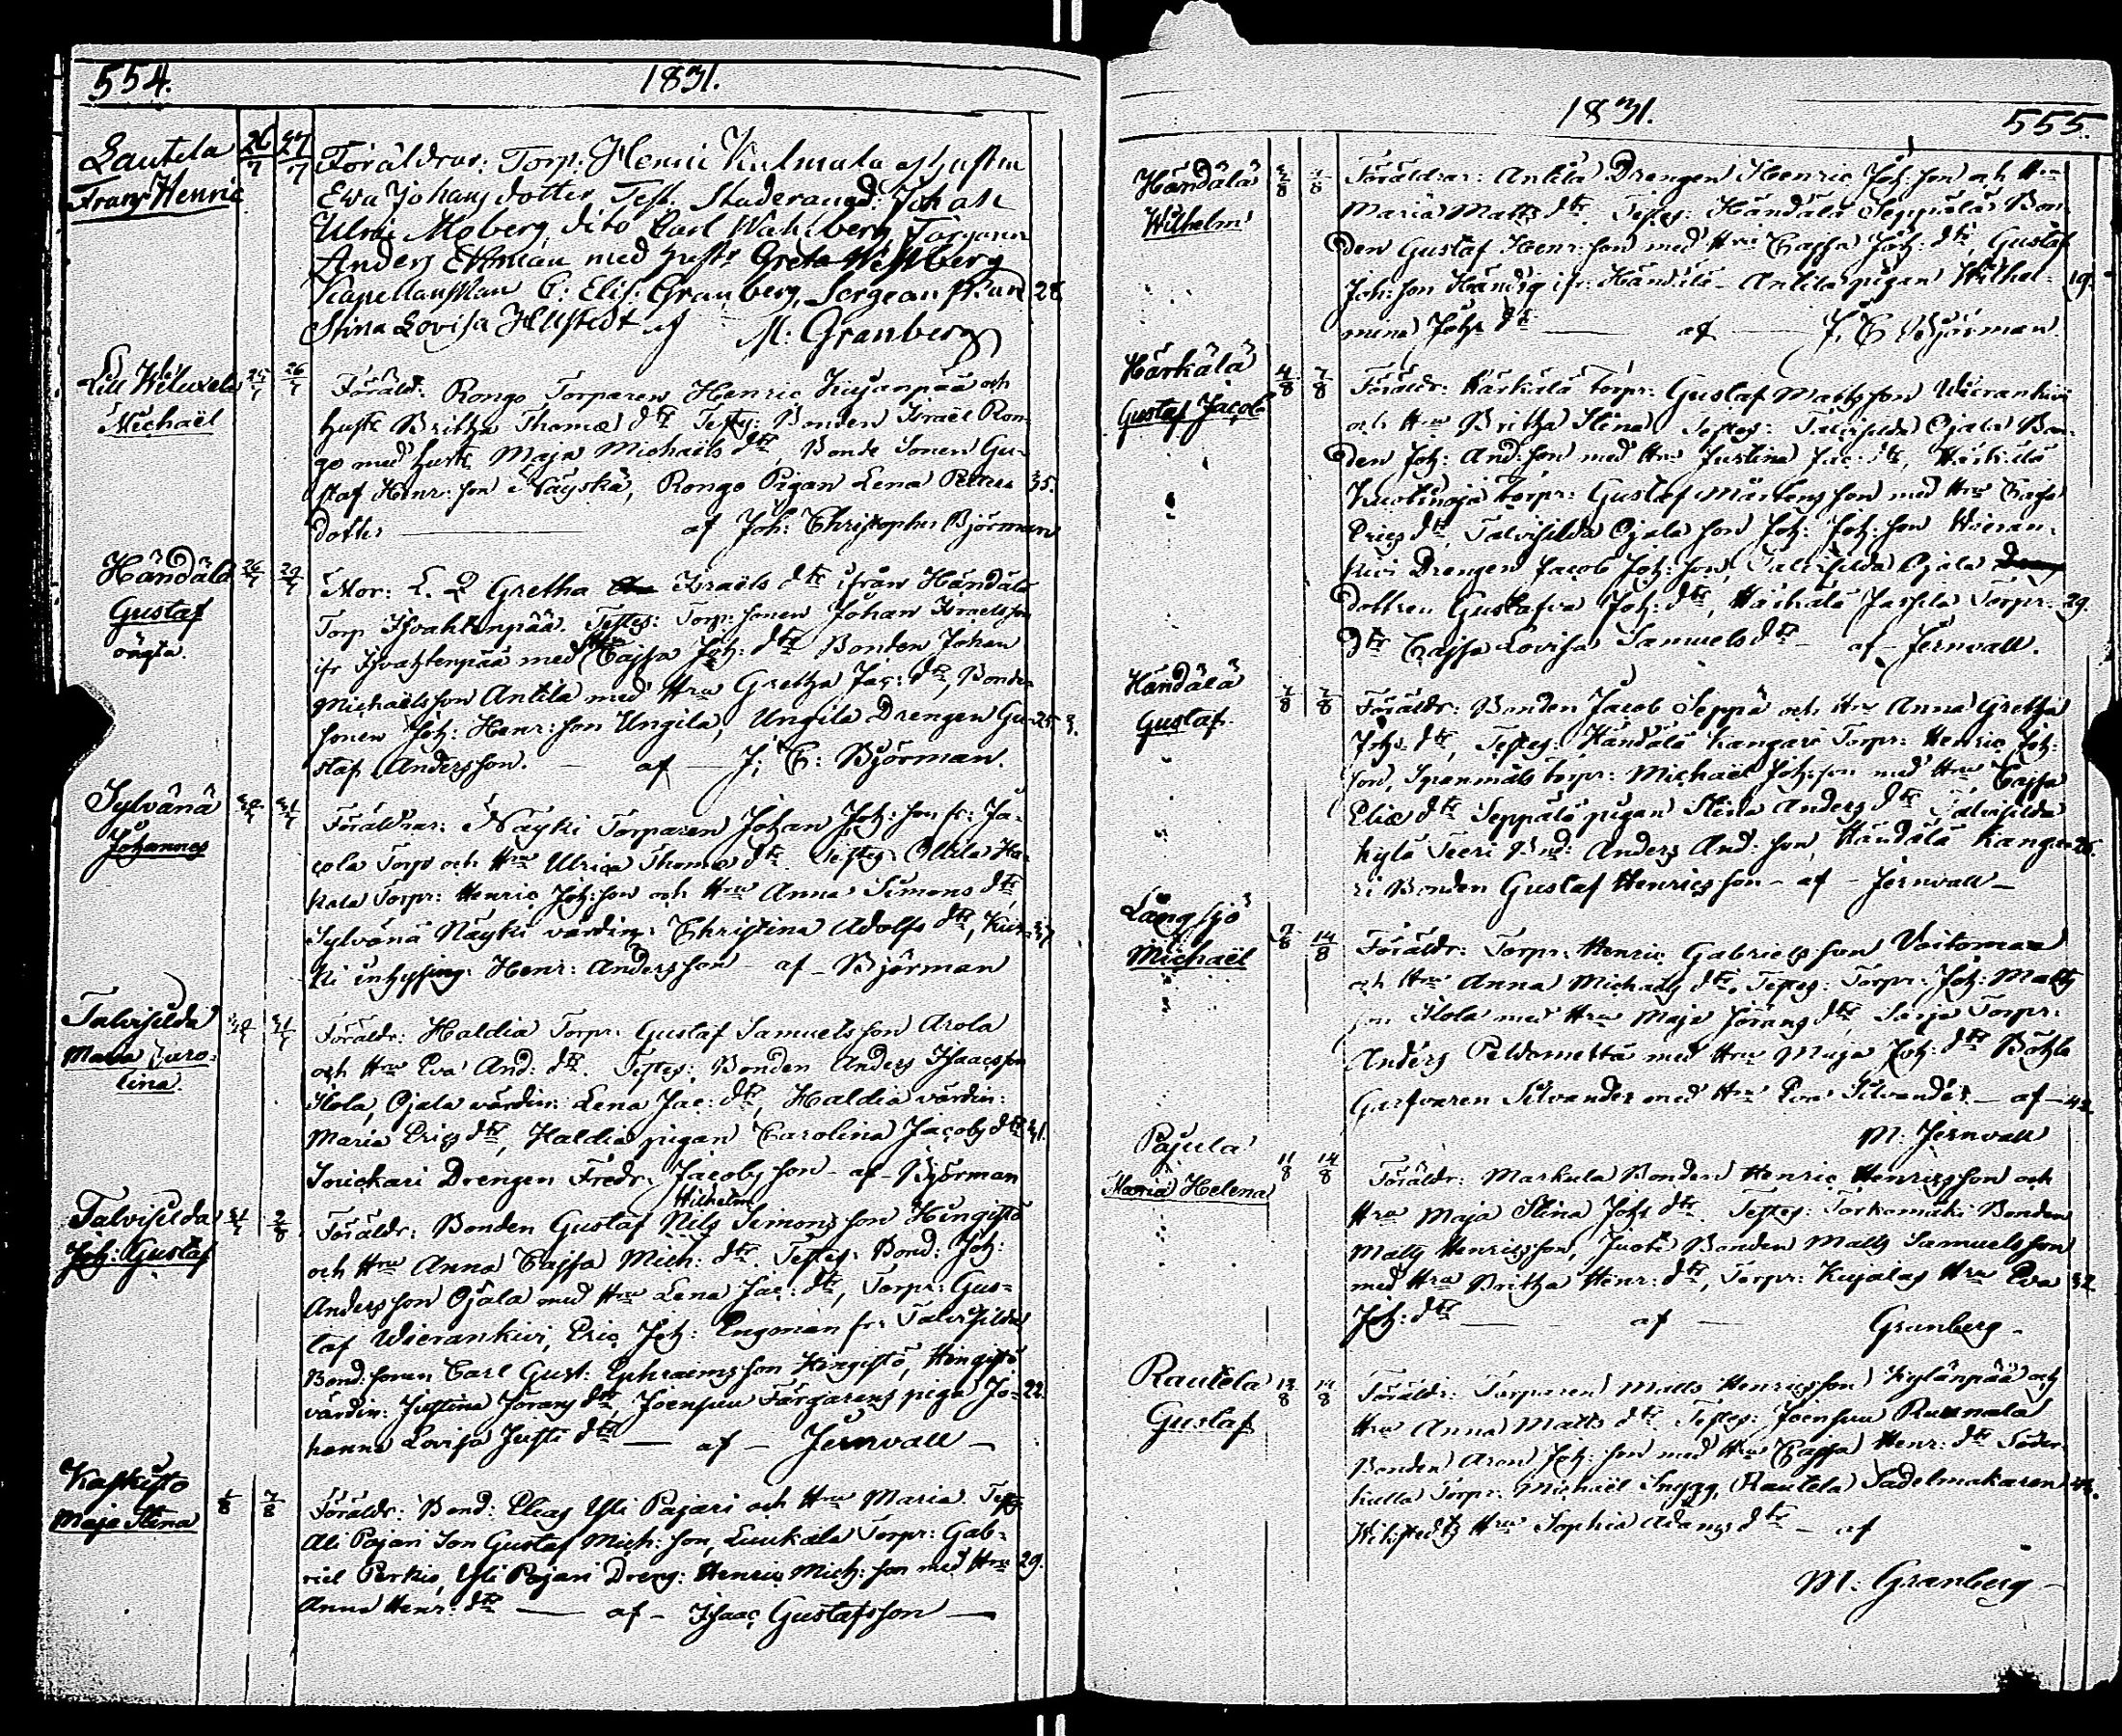 554. 1831.
Lautela 26/7 27/7 Föräldrar: Torp: Henric Kulmala och hustru
Frans Henric Ewa Johans dotter Test. Studerand: Johan
Ulric Moberg, dito Carl Wahlberg, Färgaren
Anders Ekman med hustr Greta Westberg
Capellanskan C: Elis: Granberg, Sergeant 28.
Stina Lovisa Hellstedt af M: Granberg
Lill 25/7 26/7 Föräld: Rongo Torparen Henric Kujanpää och
Michaël hustr Britha Thomæ dtr Testes: Bonden Israël Ron-
go med hustr Maja Michaëls dtr, Bonde Sonen Gu-
staf Henr: son Näyskä, Rongo Pigan Lena Petters 35.
dotter af Joh: Christopher Björman
Händälä 26/7 29/7 Mor: L. Q Gretha Israëls dtr ifrån Händälä
Gustaf Torp Isvahtenpää. Testes: Torp: sonen Johan Israelsson
oägta. ifr Isvahtenpää med Hru Cajsa Joh: dtr Bonden Johan
Michaëlsson Antila med Hru Gretha Jac: dtr, Bonde
sonen Joh: Henr: son Ungila, Ungila Drengen Gu- 25.
staf Andersson. af J: C: Björman.
Sylvänä Föräldrar: Näyki Torparen Johan Joh: son fr: Ja-
Johannes cola Torp och Hru Ulrica Thomæ dtr Testes Ollila
Torpr: Henric Joh: son och Hru Anna Simons dtr,
Sylvänä Näyki värdin: Christina Adolfs dtr, 37
inhysing: Henr: Andersson af Björman
Talvisilda 31/7 Föräldr: Haldia Torpr: Gustaf Samuelsson Arola
Maria Caro- och Hru Eva And: dtr. Testes: Bonden Anders Isaacsson
lina. Ilola, Ojala värdin: Lena Jac: dtr, Haldia värdin:
Maria Erics dtr, Haldia pigan Carolina Jacobs dtr 31.
Souckari Drengen Fredr: Jacobsson af Björman
Wilhelm
Talvisilda 31/7 2/8 Föräldr: Bonden Gustaf Nils Simonsson Hingistö
Joh: Gustaf och Hru Anna Cajsa Mich: dtr. Testes: Bond: Joh:
Andersson Ojala med Hru Lena Jac: dtr, Torpr: Gus-
taf Wierankivi, Eric Joh: Engoman fr: Talvisilda
Bond: sonen Carl Gust: Ephraimsson Hingistö, Hingistö
värdin: Justina Jörans dtr, Joensuu Färgarens piga Jo- 22.
hanna Lovisa Justi dtr af Jernvall
Kaskisto 1/8 7/8 Föräldr: Bond: Elias Yli Pajari och Hru Maria. Testes
Maja Stina Ali Pajari Son Gustaf Mich: son, Luukala Torpr: Gab-
riel Perkiö, Yli Pajari Dreng: Henric Mich: son med Hru 29.
Anna Henr: dtr af Isaac Gustafsson
1831. 555.
Händälä 7/8 Föräldrar: Antila Drengen Henric Joh: son och Hru
Wilhelm Maria Matts dtr. Testes: Händälä Seppälä Bon-
den Gustaf Henr: son med Hru Cajsa Joh: dtr, Gustaf
Joh: son ifr: Händälä Antila pigan Wilhel- 19.
mina Johs dtr af J. C Björman.
Härkälä 4/8 7/8 Föräldr: Härkälä Torpr: Gustaf Mattsson Wierankivi
Gustaf Jacob och Hru Britha Stina Testes: Talvisilda Ojala Bon-
den Joh: And: son med Hru Justina Jac: dtr, Härkälä
Kuoninoja Torpr: Gustaf Mårtensson med Hru Cajsa
Erics dtr, Talvisilda Ojala son Joh: Joh: son Wieran-
kivi Drengen Jacob Joh: son, Talvisilda Ojala
dottren Gustafva Joh: dtr, Härkälä Jaskila Torpr: 29.
dtr Cajsa Lovisa Samuels dtr af Jernvall.
Händälä 7/8 7/8 Föräldr: Bonden Jacob Seppä och Hru Anna Gretha
Gustaf. Johs: dtr, Testes: Händälä Kangari Torpr: Henric Joh:
son, Spanmäls torpr: Michaël Joh: son med Hru Cajsa
Eliæ dtr Seppälä pigan Stina Anders dtr Talvisilda
kylä Teeri Bnd: Anders And: son, Händälä Kanga- 26.
ri Bonden Gustaf Henricsson af Jernvall
Långsjö 9/8 14/8 Föräldr: Torpr: Henric Gabrielsson Voitomaa
Michaël och Hru Anna Michaels dtr. Testes: Torpr: Joh: Matts
son Ilola med Hru Maja Jörans dtr, Sarja Torpr:
Anders Peldometsä med Hru Maja Joh: dtr Böhle
Garfvaren Silvander med Hru Eva Silvander af 42
M: Jernvall
Pajula 11/8 14/8 Föräldr: Markula Bonden Henric Henricsson och
Maria Helena Hru Maja Stina Johs dtr. Testes: Torkomäki Bonden
Matts Henricsson, Juoti Bonden Matts Samuelsson
med Hru Britha Henr: dtr, Torpr: Kujalas Hru Eva 32
Joh: dtr af Granberg
Rautela 12/8 14/8 Föräldr: Torparen Matts Henricsson Kylänpää och
Gustaf Hru Anna Matts dtr Testes: Joensuu Runnala
Bonden Aron Joh: son med Hru Cajsa Henr: dtr Söder-
kulla Torpr: Michaël Snygg, Rautela Sadelmakaren
Wikstedts Hru Sophia Adams dtr af
M: Granberg